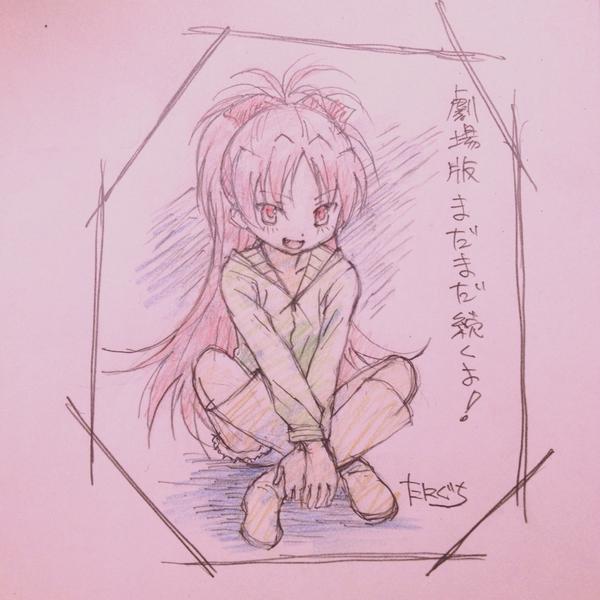 劇場版 まだまだ続くよ!
たにぐち